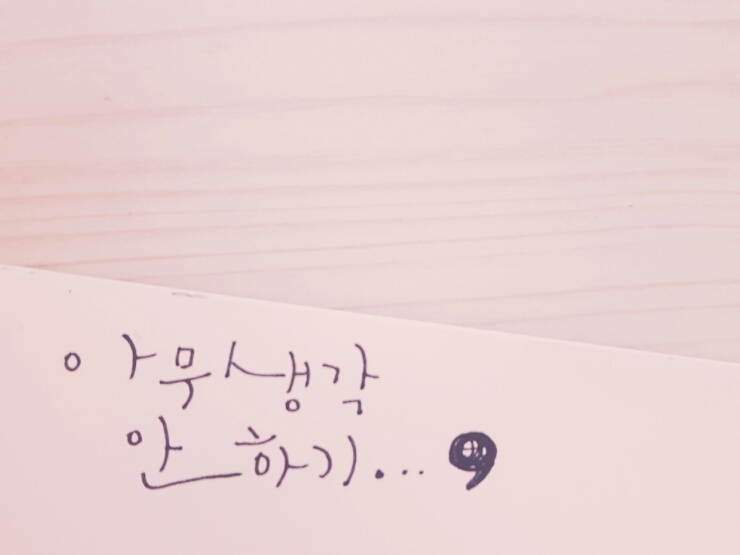 아무 생각
안 하기...